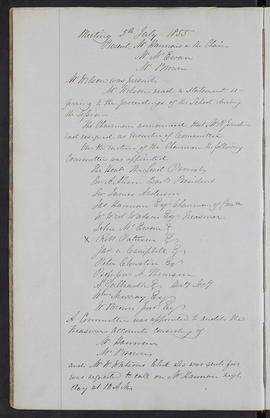 Meeting 5th July 1855
Present Mr Hannan in the Chair
Mr McEwan
Mr Brown
Mr Wilson was present
Mr Wilson read a Statement re-
ferring to the proceedings of the School during
the Session
The Chairman announced that Mr
had resigned as member of Committee
On the motion of the Chairman the following
Committee was appointed
The Honble The Lord Provost
Sir A. Alison Bart President
Sir James Anderson
Jas Hannan Esq Chairman of Comtee
W. West Watson Esq Treasurer
John McEwan Esq
x Robt Paterson Esq
Jas A Campbell Esq
Peter Clouston Esq
Professor Thomson
A Galbraith Esq
Wm Murray Esq
W Brown Junr Esq
A Committee was appointed to audit the
Treasurers accounts consisting of
Mr Hannan
Mr Brown
and Mr W Watsons Clerk who was sent for
was requested to call on Mr Hannan next
day at 10 A.M.